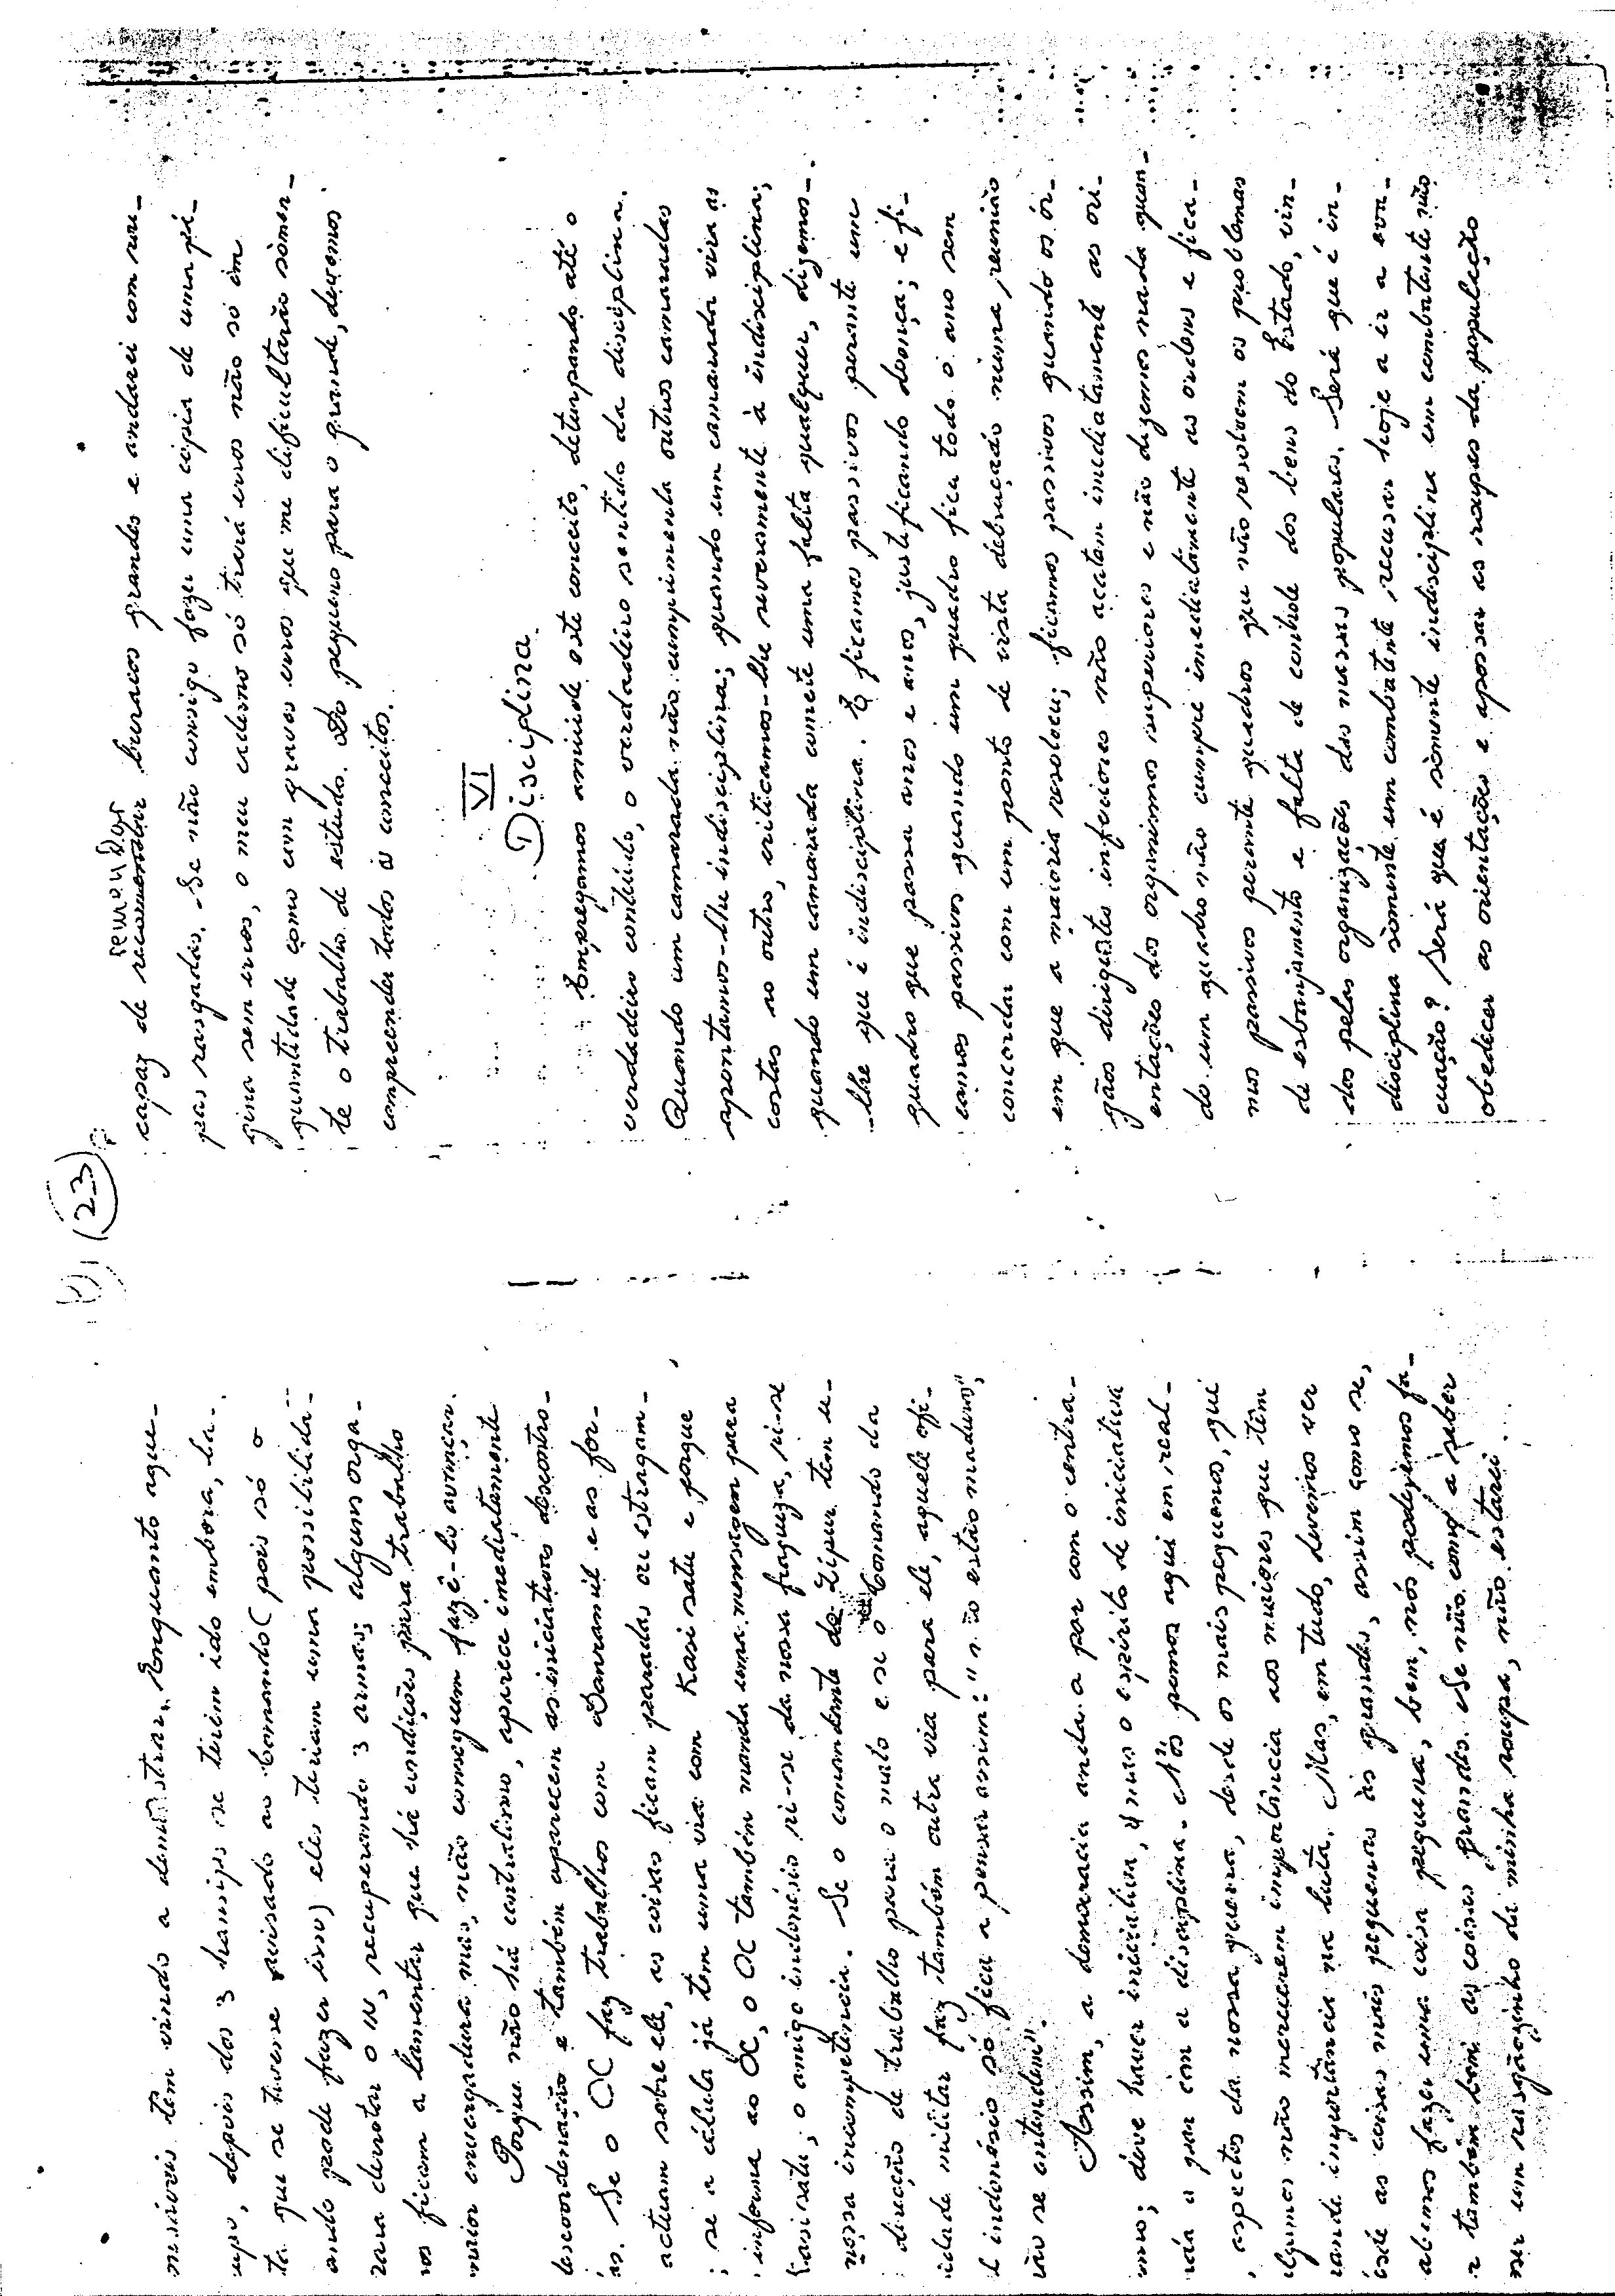 têm vindo a demonstrar. Enquanto aque-
depois dos 3 se terem ido embora, ba-
que se tivesse avisado ao Comando (pois só o
pode fazer isso) eles teriam uma possibilida-
derrotar o IN, recuperando 3 armas; alguns orga-
ficam a lamentar que há condições para trabalho
envergadura mas, não conseguem fazê-lo avançar.
Porque não há centralismo, aparece imediatamente
descoordenação e também aparecem as iniciativas descontro-
Se o OC faz trabalhos com e as for-
actuam sobre ele, as coisas ficam paradas ou estragam-
; se a célula já tem uma via com Kasisatu e porque
informa ao OC, o OC também manda uma mensagem para
Kasisatu; o amigo indonésio ri-se da nossa fraqueza, ri-se
nossa incompetência. Se o comandante de Zipur tem u-
direcção de trabalho para o mato e se o Comando da
militar faz também outra via para ele, aquele ofi-
indonésio só fica a pensar assim: "não estão maduros",
não se entendem".
Assim, a democracia anda a par com o centra-
; deve haver iniciativa, mas o espírito de iniciativa
com a disciplina. Nós pomos aqui em real-
aspectos da nossa guerra, desde os mais pequenos, que
não merecem importância aos maiores que têm
importância na luta. Mas, em tudo, devemos ver
as coisas mais pequenas às grandes, assim como se,
fazer uma coisa pequena, bem, nós podemos fa-
também bem as coisas grandes. Se não começo a saber
um rasgãozinho da minha roupa, não estarei
(23)
remendar
capaz de recomendar buracos grandes e andarei com rou-
pas rasgadas. Se não consigo fazer uma cópia de uma pá-
gina sem erros, o meu caderno só trará erros não só em
quantidade como em graves erros que me dificultarão sòmen-
te o trabalho de estudo. Do pequeno para o grande, devemos
compreender todos os conceitos.
VI
Disciplina
Empregamos amiúde este conceito, deturpando até o
verdadeiro contiúdo, o verdadeiro sentido da disciplina.
Quando um camarada não cumprimenta outros camaradas
apontamos-lhe indisciplina; quando um camarada vira as
costas ao outro, criticamos-lhe severamente à indisciplina;
quando um camarada comete uma falta qualquer, dizemos-
-lhe que é indisciplina. E ficamos passivos perante um
quadro que passa anos e anos, justificando doença; e fi-
camos passivos quando um quadro fica todo o ano sem
concordar com um ponto de vista debruçado numa reunião
em que a maioria resolveu; ficamos passivos quando os ór-
gãos dirigentes inferiores não acatam imediatamente as ori-
entações dos organismos superiores e não dizemos nada quan-
do um quadro não cumpre imediatamente as ordens e fica-
mos passivos perante quadros que não resolvem os problemas
de esbanjamento e falta de controle dos bens do Estado, vin-
dos pelas organizações das massas populares. Será que é in-
disciplina sòmente um combatente recusar hoje a ir a eva-
cuação? Será que é sòmente indisciplina um combatente não
obedecer as orientações e apossar as roupas da população